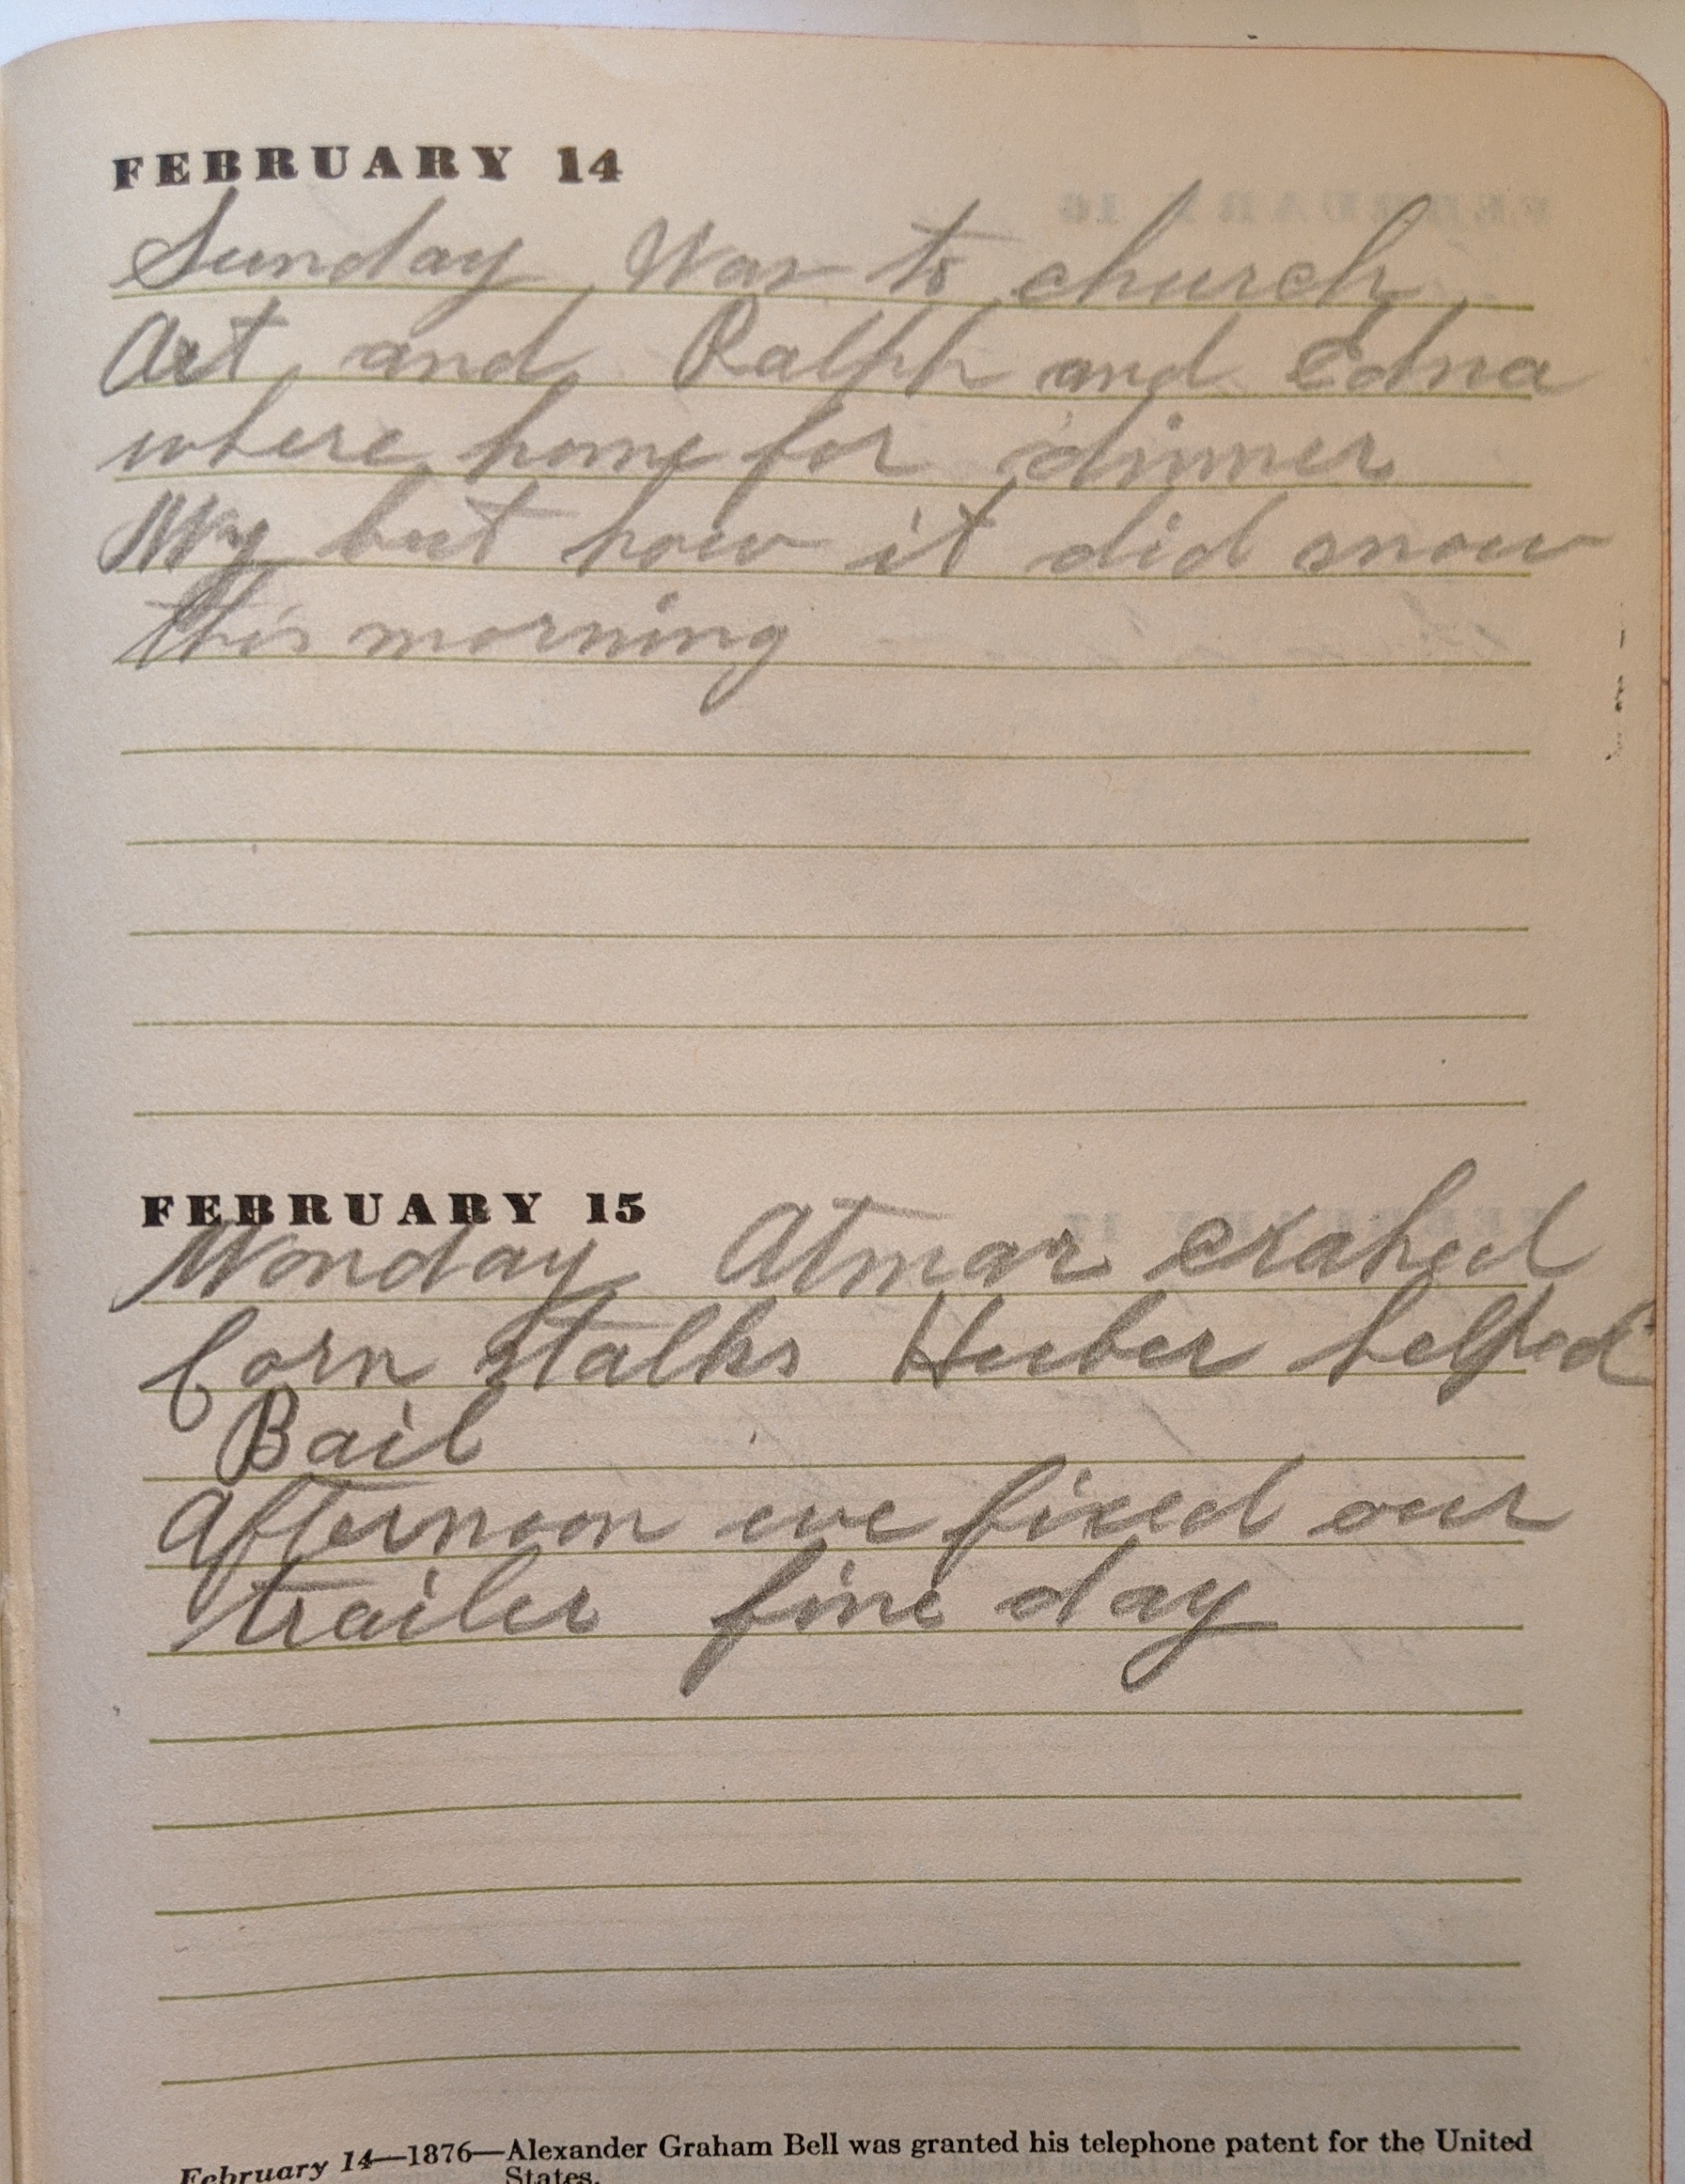 FEBRUARY 14
Sunday Was to church
Art and Ralph and Edna
where home for dinner
My but how it did snow
this morning
FEBRUARY 15
Monday Atmar
Corn stalks Huber helped
Bail
Afternoon we fixed our
trailer fine day
February 14—1876—Alexander Graham Bell was granted his telephone patent for the United
States.